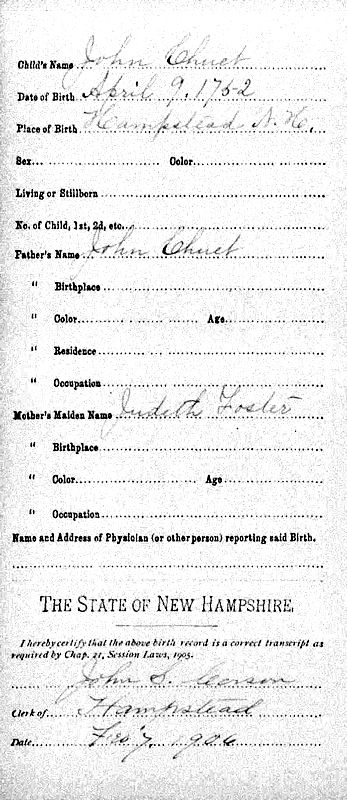 Child's Name John Chuet
Date of Birth April 9, 1752
Place of Birth Hampstead N. H.
Sex Color
Living or Stillborn
No. of Child, 1st, 2d, etc.
Father's Name John Chuet
" Birthplace
" Color Age
" Residence
" Occupation
Mother's Maiden Name Judith Foster
" Birthplace
" Color Age
" Occupation
Name and Address of Physician (or other person) reporting said Birth.
THE STATE OF NEW HAMPSHIRE,
I hereby certify that the above birth record is a correct transcript as
required by Chap. 21, Session Laws, 1905.
John S. Corson
Clerk of Hampstead
Date Feb 7, 1906